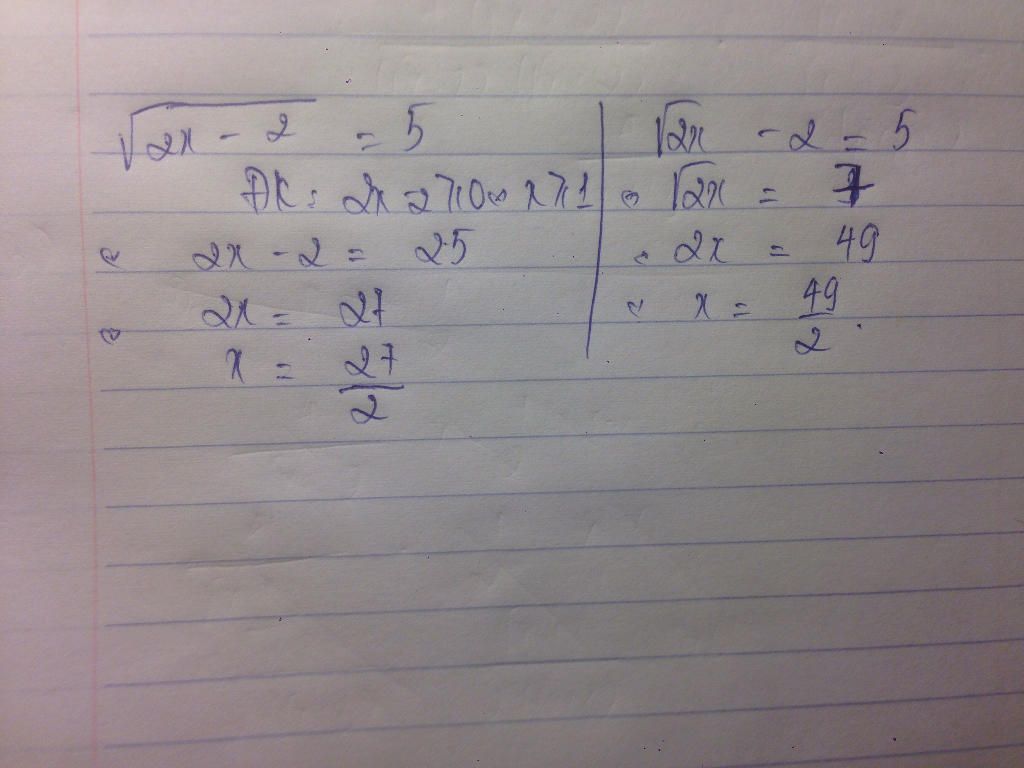 √(2x - 2) = 5
ĐK: 2x - 2 ≥ 0 ⇔ x ≥ 1
⇔ 2x - 2 = 25
⇔ 2x = 27
x = 27/2
√2x - 2 = 5
⇔ √2x = 7
⇔ 2x = 49
⇔ x = 49/2.